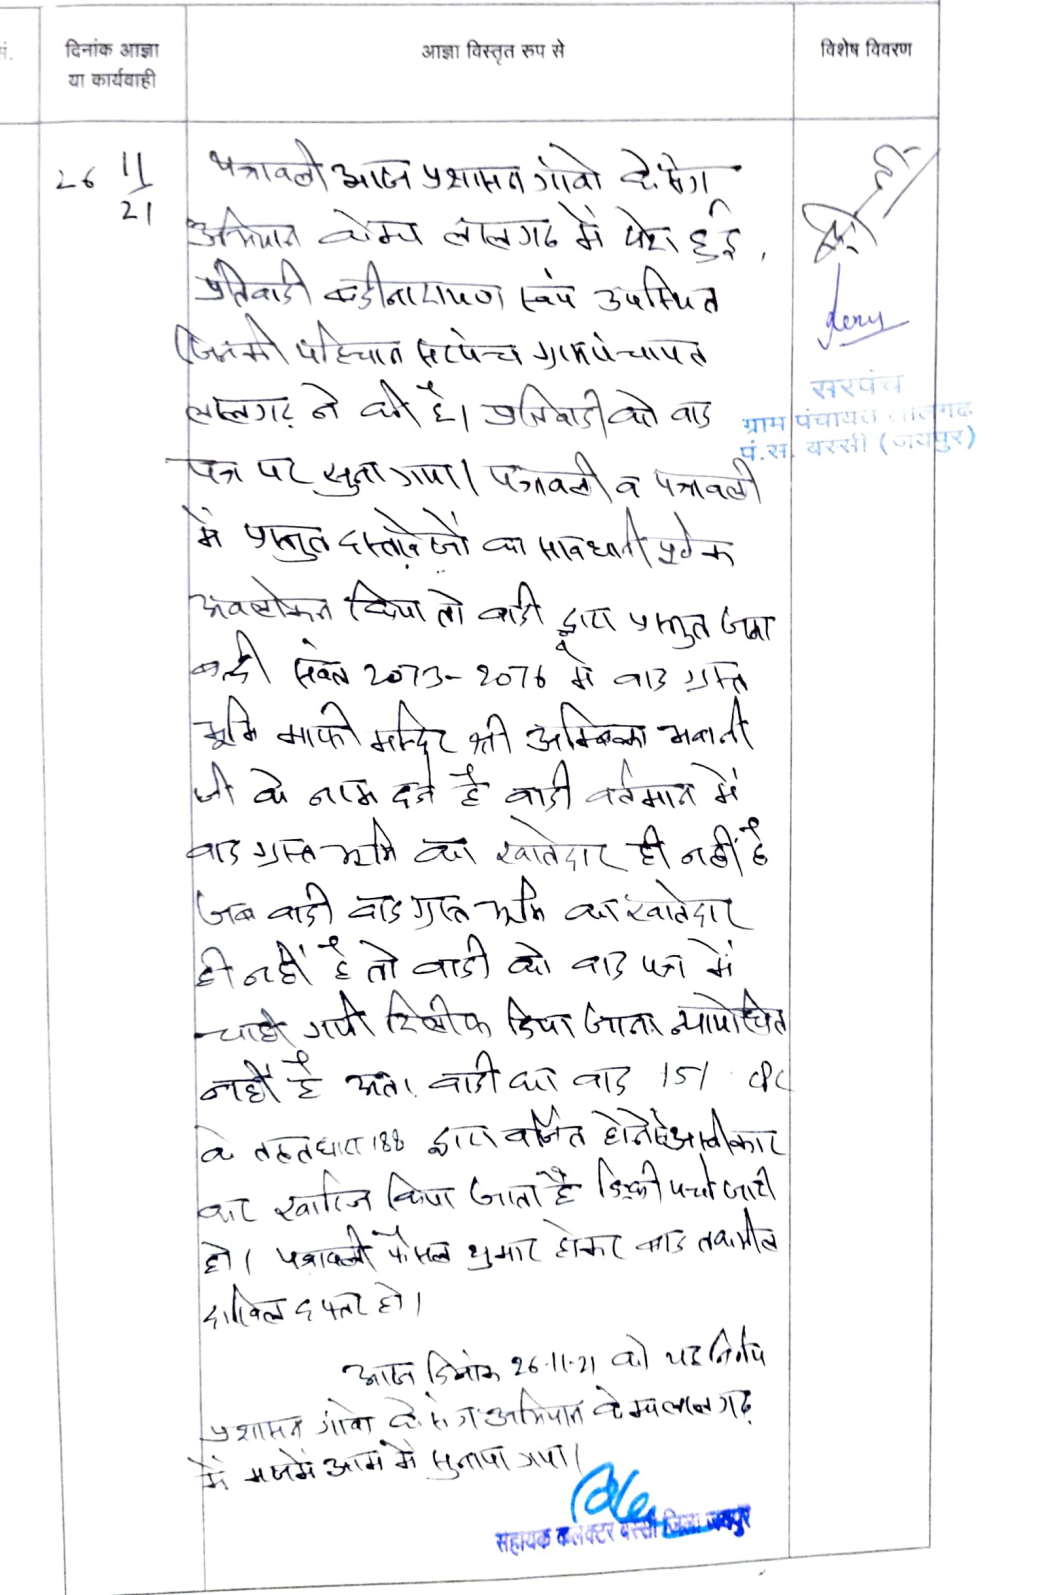 सं.
दिनांक आज्ञा
या कार्यवाही
आज्ञा विस्तृत रुप से
विशेष विवरण
26 11/21
पत्रावली आज प्रशासन गांवो के संग
अभियान केम्प लालगढ में पेश हुई,
प्रतिवादी बद्रीनारायण स्वंय उपस्थित
जिनकी पहिचान सरपंच ग्रामपंचायत
लालगढ़ ने की है। प्रतिवादी को वाद
पत्र पर सुना गया। पत्रावली व पत्रावली
में प्रस्तुत दस्तावेजों का सावधानी पूर्वक
अवलोकन किया तो वादी द्वारा प्रस्तुत जमा
बन्दी संवत 2073-2076 में वाद ग्रस्त
भूमि माफी मन्दिर श्री अम्बिका भवानी
जी के नाम दर्ज है वादी वर्तमान में
वाद ग्रस्त भूमि का खातेदार ही नहीं है
जब वादी वाद ग्रस्त भूमि का खातेदार
ही नहीं है तो वादी को वाद पत्र में
चाही गयी रिलीफ दिया जाना न्यायोचित
नहीं है अतः वादी का वाद 151 CPC
के तहत धारा 188 द्वारा वर्जित होने से अस्वीकार
कर खारिज किया जाता है डिक्री पर्चा जारी
हो। पत्रावली फैसल शुमार होकर बाद तकमील
दाखिल दफ्तर हो।
आज दिनांक 26.11.21 को यह निर्णय
प्रशासन गांवो के संग अभियान केम्प लालगढ़
में मजमें आम में सुनाया गया।
सरपंच
ग्राम पंचायत लालगढ
पं.स. बस्सी (जयपुर)
सहायक कलक्टर बस्सी जिला जयपुर